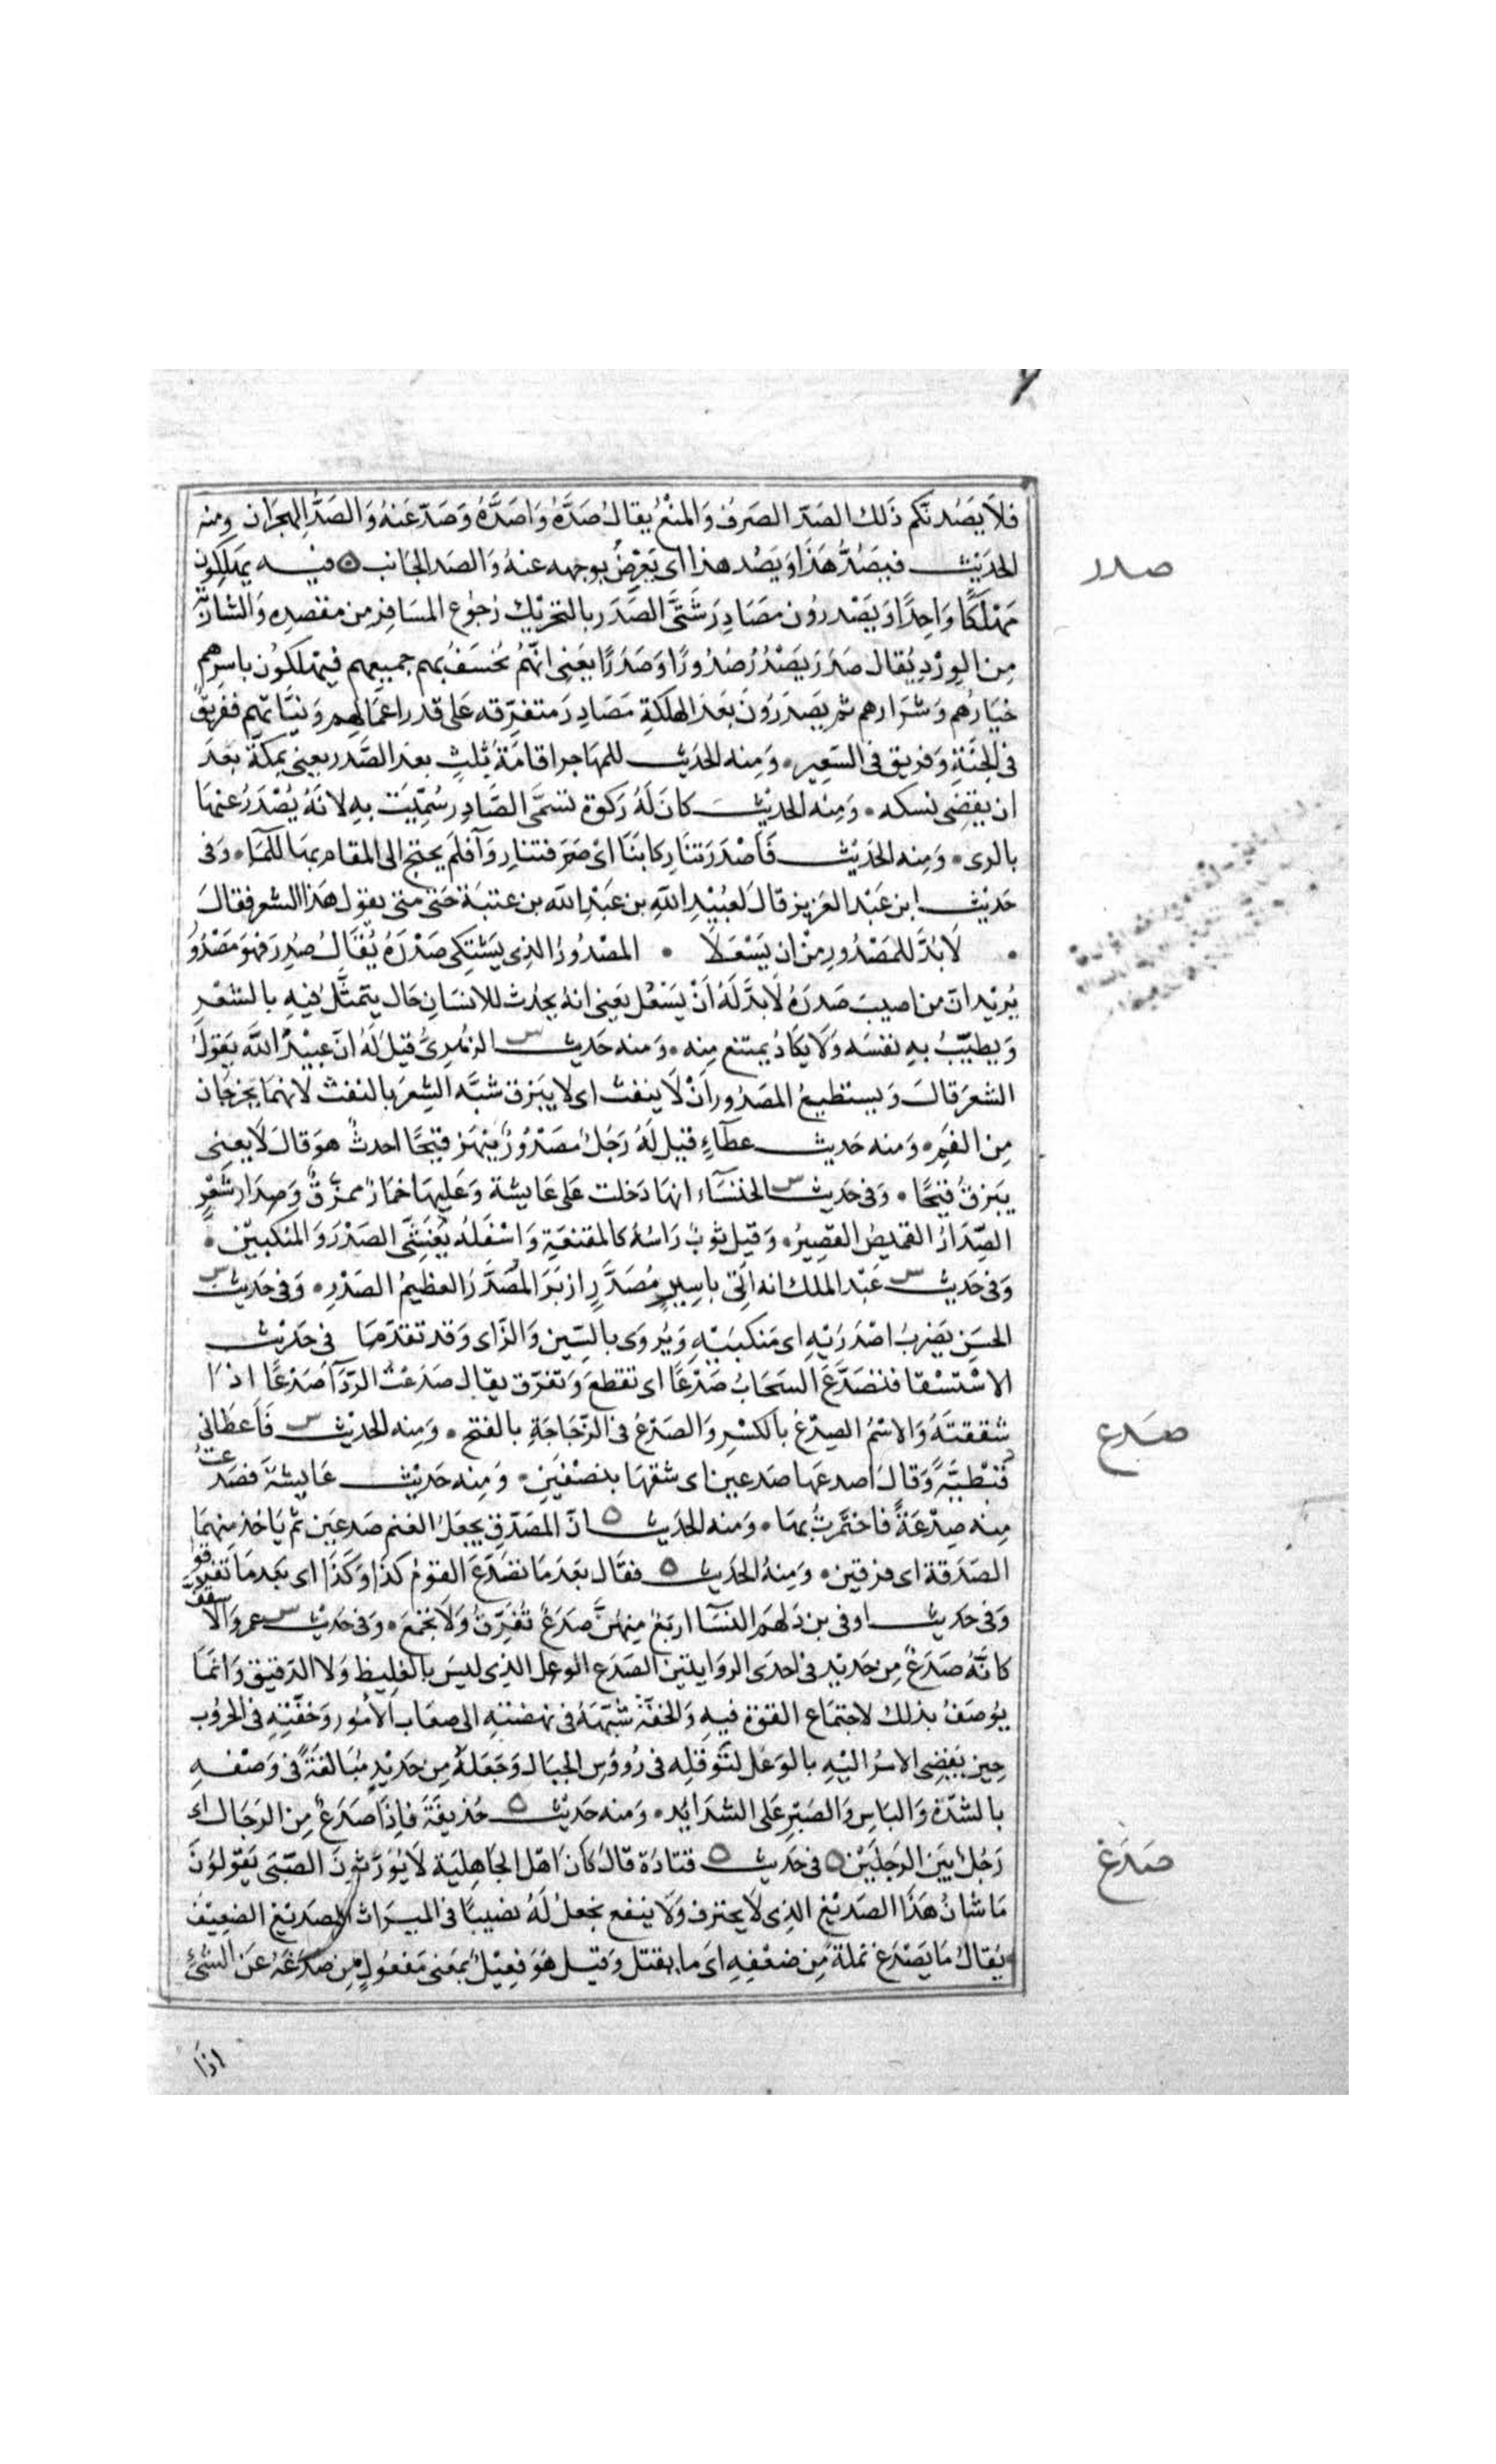 فلا يصدنكم ذلك الصدّ الصرف والمنع يقال صدّه واصدّه وصدّ عنه والصدّ الهجران ومنه
الحديث فيصدّ هذا ويصد هذا اى يعرض بوجهه عنه والصد الجانب ٥ فيه يهلكون
صدر
مهلكا واحدا ويصدرون مصادر شتّى الصدر بالتحريك رجوع المسافر من مقصده والشاربة
من الورد يقال صدر يصدر صدورا وصدرا يعنى انهم يخسف بهم جميعهم فيهلكون باسرهم
خيارهم وشرارهم ثم يصدرون بعد الهلكة مصادر متفرقه على قدر اعمالهم ونيّاتهم ففريق
فى الجنة وفريق فى السعير • ومنه الحديث للمهاجر اقامة ثلث بعد الصدر يعنى بمكة بعد
ان يقضى نسكه • ومنه الحديث كان له ركوة تسمّى الصادر سمّيت به لانه يصدر عنها
بالرى • ومنه الحديث فاصدرتنا ركابنا اى صرفتنا روآ فلم يحتج الى المقام بها للماء • وفى
حديث ابن عبد العزيز قال لعبيد الله بن عبد الله بن عتبة حتى متى تقول هذا الشعر فقال
• لا بدّ للمصدور من ان يسعلا • المصدور الذى يشتكى صدره يقال صدر فهو مصدور
يريد ان من اصيب صدره لا بدّ له ان يسعل يعنى انه يحدث للانسان حال يتمثّل فيه بالشعر
ويطيّب به نفسه ولا يكاد يمتنع منه • ومنه حديث س الزهرى قيل له انّ عبيد الله يقول
الشعر قال ويستطيع المصدور ان لا ينفث اى لا يبزق شبّه الشعر بالنفث لانهما يخرجان
من الفم • ومنه حديث عطآء قيل له رجل مصدور ينهز قيحا احدث هو قال لا يعنى
يبزق قيحا • وفى حديث س الخنسآء انها دخلت على عايشة وعليها خمار ممزّق وصدار شعر
الصّدار القميص القصير • وقيل ثوب راسه كالمقنعة واسفله يغشّى الصدر والمنكبين •
وفى حديث س عبد الملك انه اتى باسير مصدّر ازبر المصدّر العظيم الصدر • وفى حديث س
الحسن يضرب اصدريه اى منكبيه ويروى بالسين والزاى وقد تقدّما فى حديث
الاستسقا فتصدّع السحاب صدعا اى تقطع وتفرّق يقال صدعت الردآ صدعا اذا
شققته والاسم الصدع بالكسر والصدع فى الزجاجة بالفتح • ومنه الحديث س فاعطانى
صدع
قبطيّة وقال اصدعها صدعين اى شقها بنصفين • ومنه حديث عايشة فصدعت
منه صدعة فاختمرت بها • ومنه الحديث ٥ انّ المصدّق يجعل الغنم صدعين ثم ياخذ منهما
الصدقة اى فرقين • ومنه الحديث ٥ فقال بعد ما تصدّع القوم كذا وكذا اى بعد ما تفرقوا
وفى حديث اوفى بن دلهم النسآ اربع منهنّ صدع تفرّق ولا تجمع • وفى حديث س عمر والاسقف
كانّه صدع من حديد فى احدى الروايتين الصدع الوعل الذى ليس بالغليظ ولا الدقيق وانما
يوصف بذلك لاجتماع القوة فيه والخفّة شبّهه فى نهضته الى صعاب الامور وخفّته فى الحروب
حين يفضى الامر اليه بالوعل لتوقله فى رؤوس الجبال وجعله من حديد مبالغة فى وصفه
بالشدّة والباس والصبر على الشدايد • ومنه حديث ٥ حذيفة فاذا صدع من الرجال اى
رجل بين الرجلين ٥ فى حديث ٥ قتادة قال كان اهل الجاهلية لا يورّثون الصبّى يقولون
صدغ
ما شان هذا الصديغ الذى لا يحترف ولا ينفع نجعل له نصيبا فى الميراث الصديغ الضعيف
يقال ما يصدغ نملة من ضعفه اى ما يقتل وقيل هو فعيل بمعنى مفعول من صدغه عن الشئ
اذا